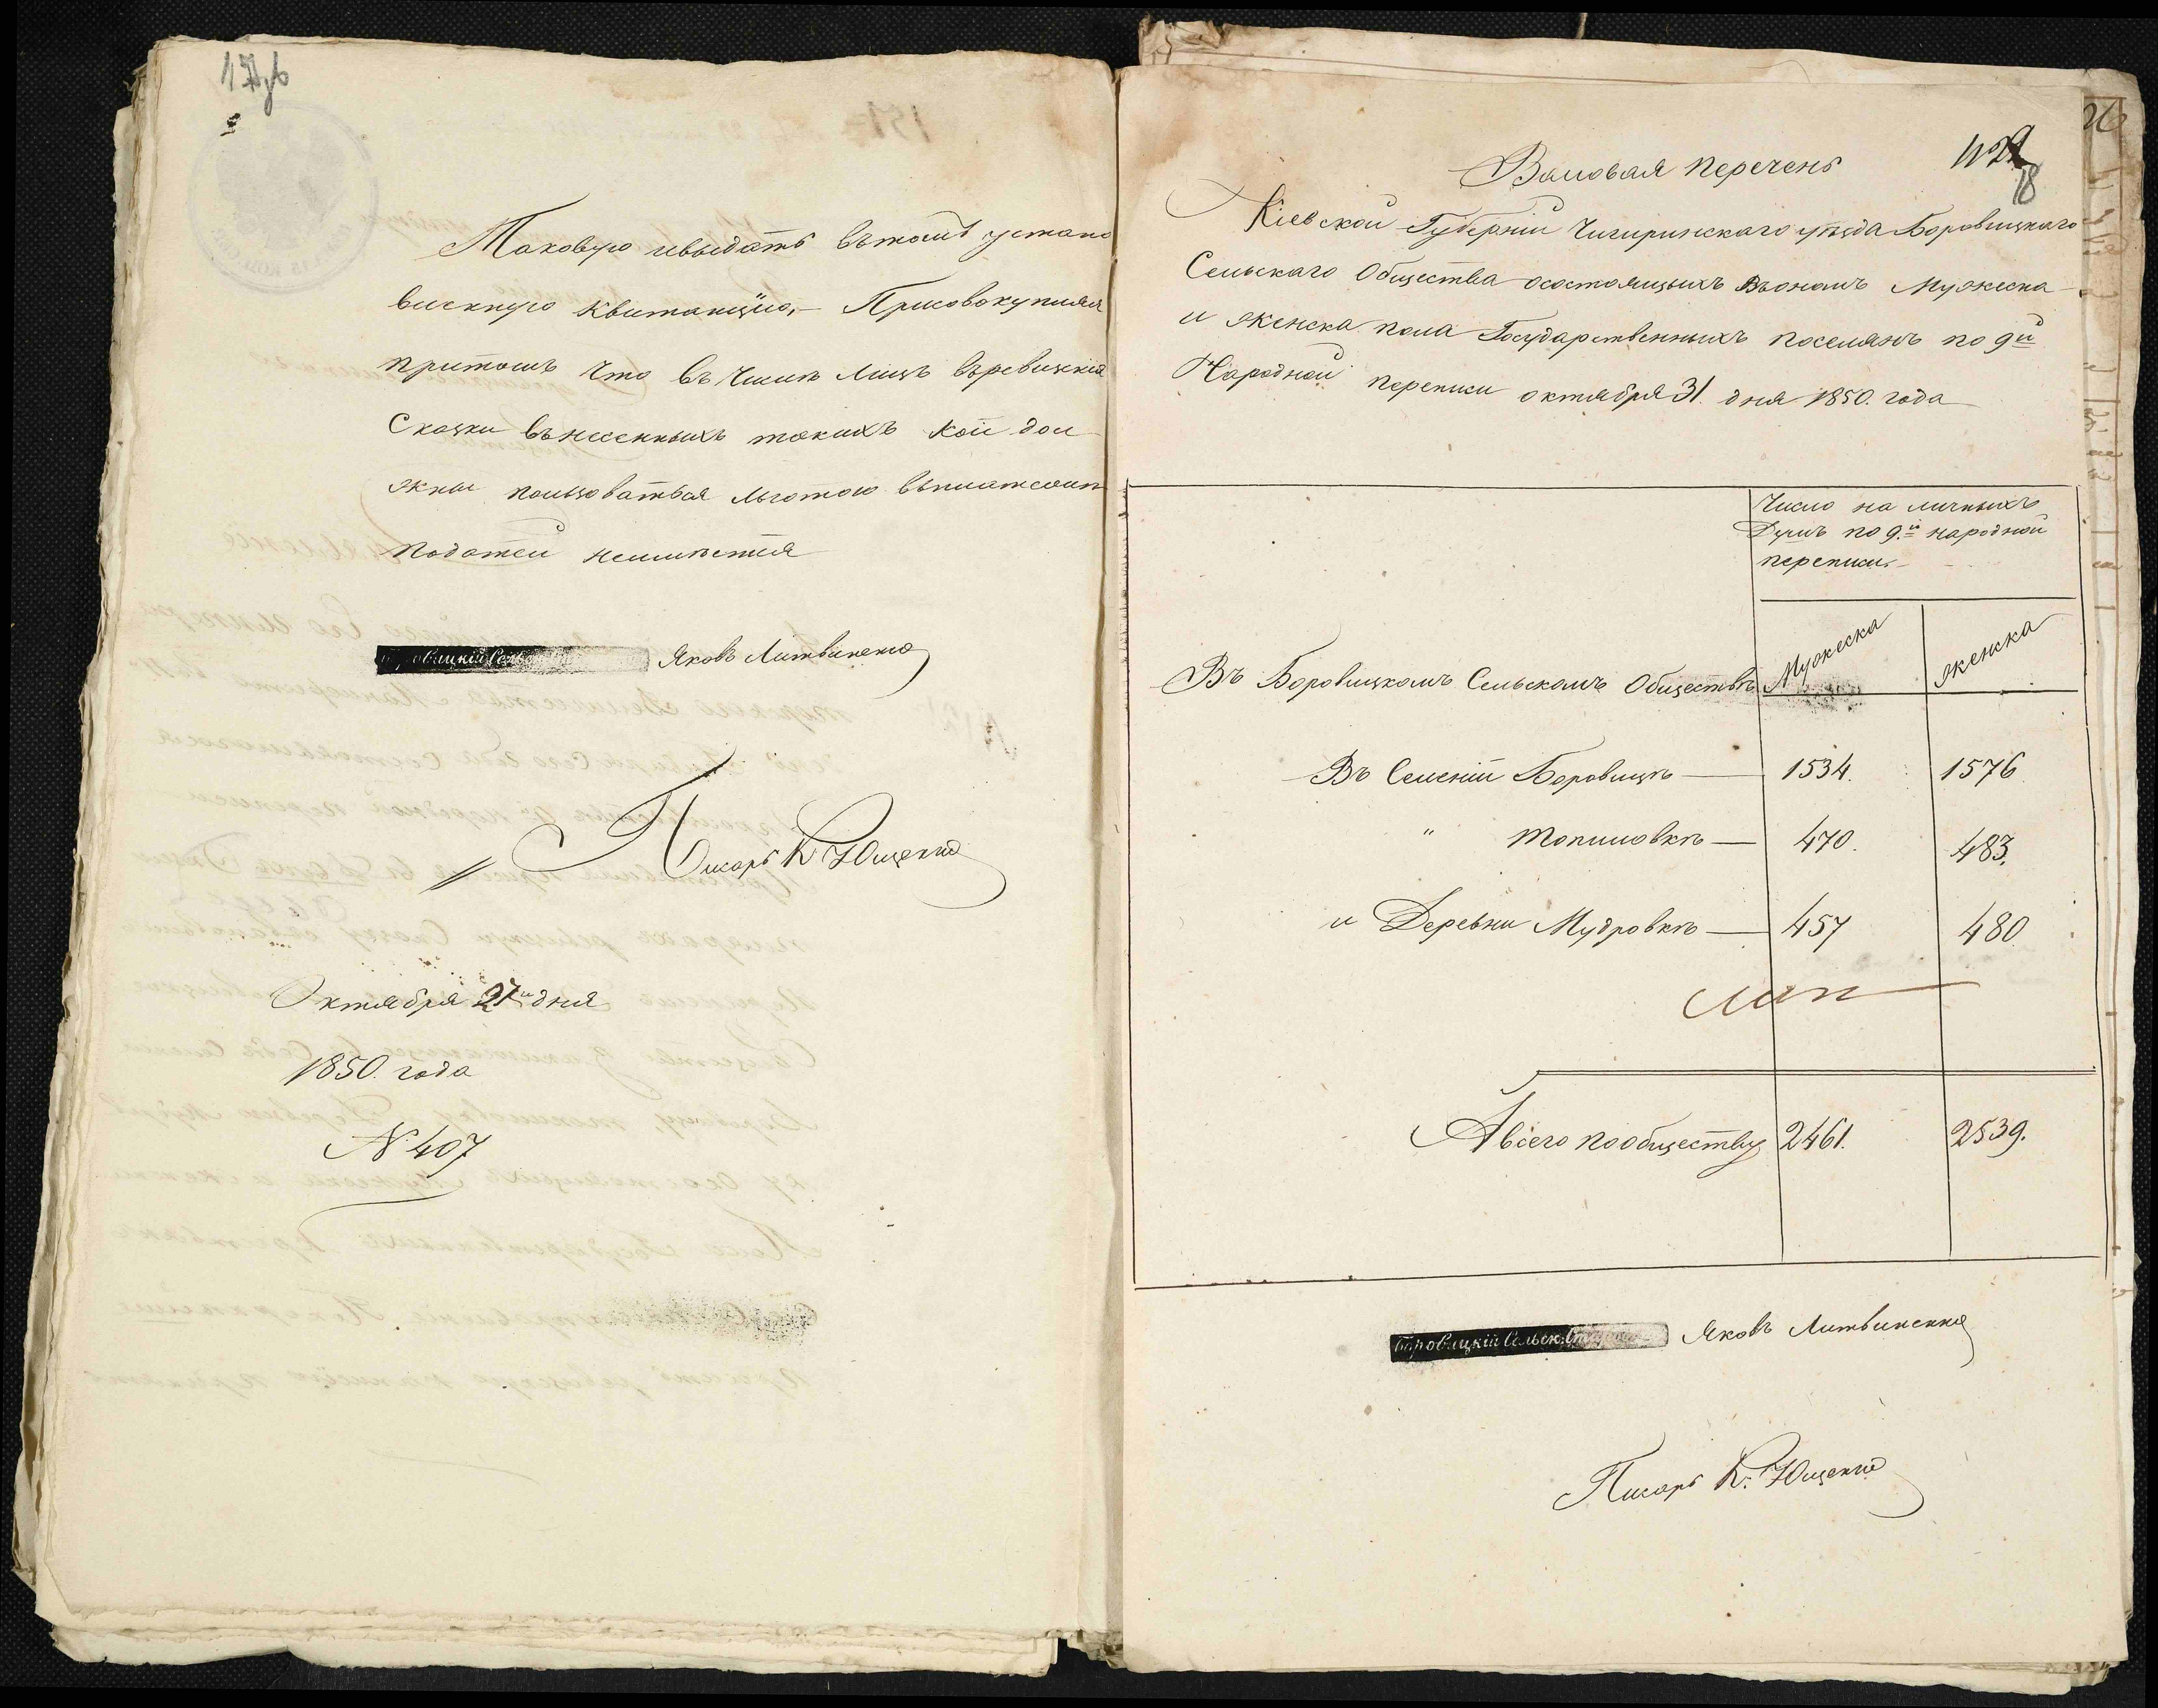 Таковую ивыдать вътомъ устано
вленную квитанцію, — Присовокупляя
притомъ что въ числѣ лицъ въревизкія
Сказки вънесенныхъ такихъ кои дол
жны пользоваться льготою въплатежѣ
податей неимѣется
Яковъ Литвиненко
Писарь К Ющенко
Октября 27го дня
1850. года
№ 407
Валовая перечень
18
Кіевской Губерніи Чигиринскаго уѣзда Боровицкаго
Сельскаго Общества осостоящихъ Въономъ Мужеска
и женска пола Государственныхъ поселянъ по 9й
Народной переписи октября 31. дня 1850. года
Число на личныхъ
Душъ по 9.й народной
переписи.
Въ Боровицкомъ Сельскомъ Обществѣ
Мужеска
женска
Въ Селеніи Боровицѣ — 1534. 1576
" Топиловкѣ — 470. 483.
и Деревни Мудровкѣ — 457 480
Авсего пообществу 2461. 2539.
Боровицкій Сельск. Яковъ Литвиненко
Писарь К. Ющенко